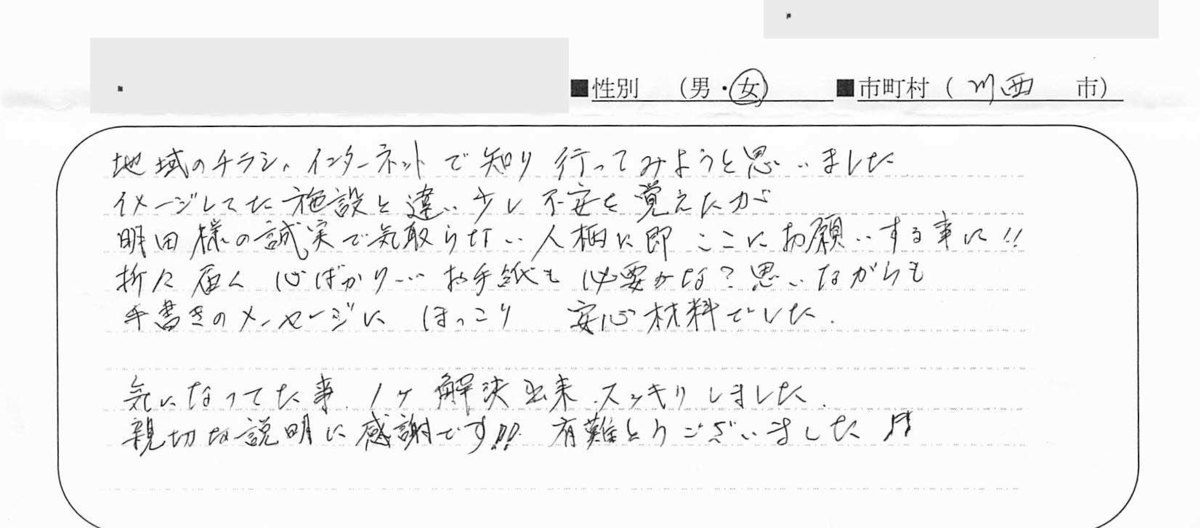 ■性別　（男・女）　■市町村（ 川西　市）
地域のチラシ、インターネットで知り 行ってみようと思いました
イメージしてた施設と違い少し 不安を覚えたが
明田様の誠実で気取らない人柄に即 ここにお願いする事に!!
折々届く 心ばかり… お手紙も 必要かな？思いながらも
手書きのメッセージに ほっこり 安心材料でした.
気になってた事、1ヶ 解決出来、スッキリしました.
親切な説明に感謝です!! 有難とうございました!!